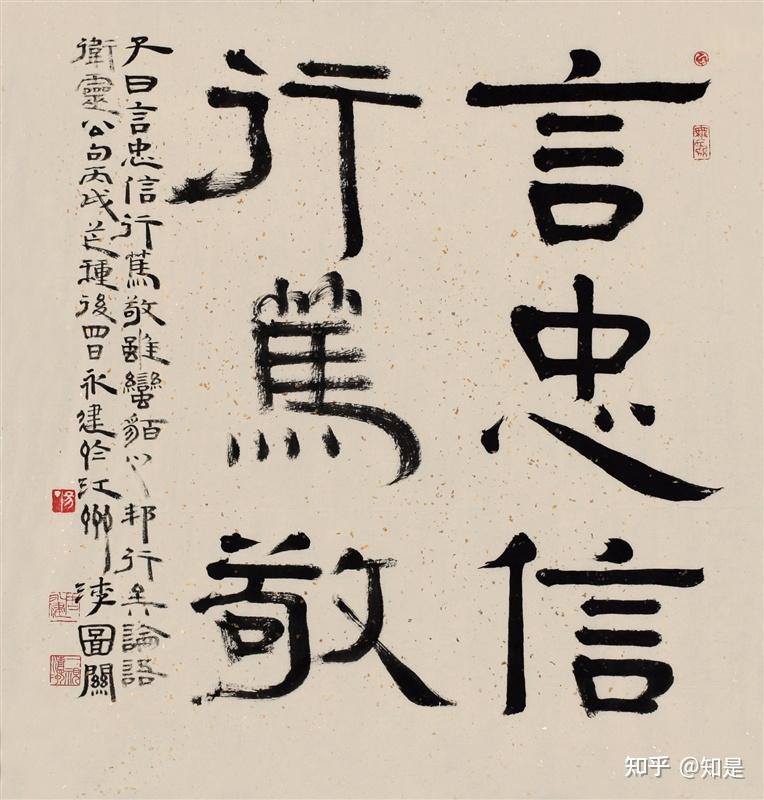 言忠信
行篤敬
子曰言忠信行篤敬雖蠻貊之邦行矣論語
衛靈公句丙戌芒種後四日永建於江州浮圖關
知乎 @知是